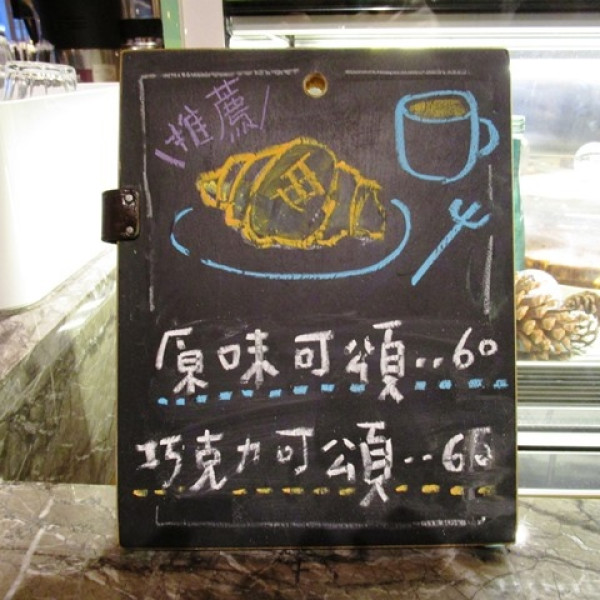 推薦
原味可頌..60
巧克力可頌..65